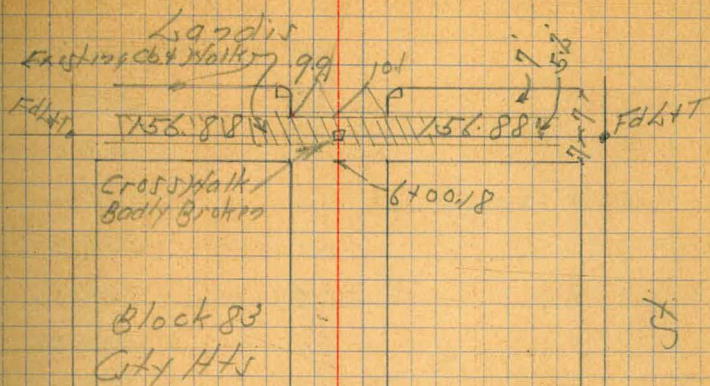 Landis
Existing Cbt Walk
9.9 10.1
7' 5.2'
Fd L+T 156.88 156.88 7 7 Fd L+T
Cross Walk
Badly Broken
6+00.18
Block 83
City Hts
St